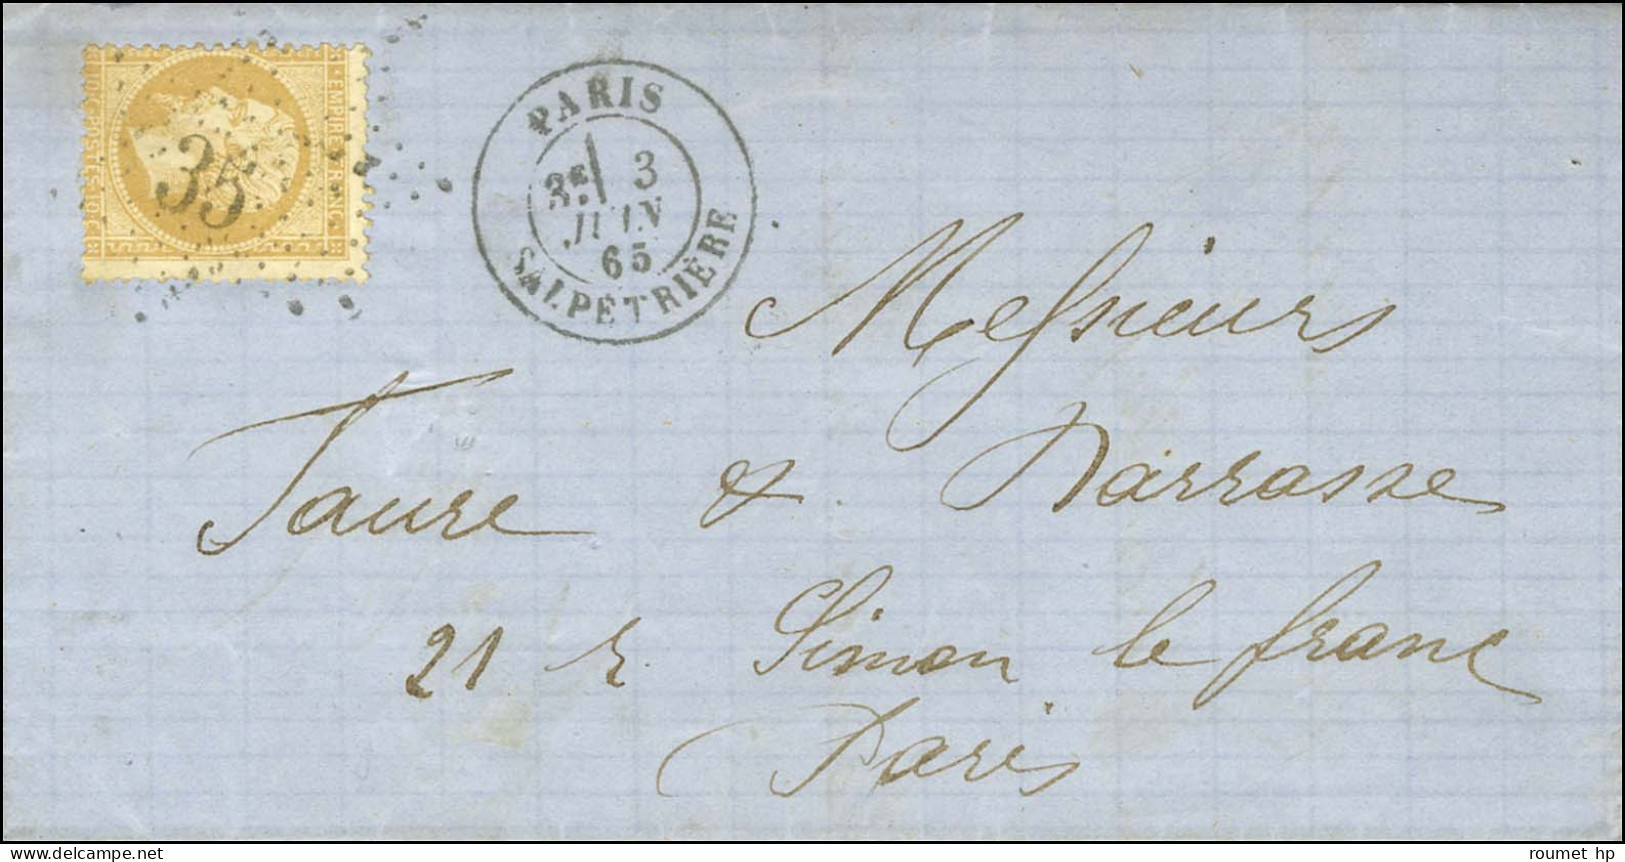 EMPIRE FRANC.
10 C. POSTES 10 C.
35
PARIS
3E 3
JUIN
65
SALPETRIÈRE
Messieurs
Faure & Darrasse
21 r. Simon le franc
Paris
www.delcampe.net
roumet hp